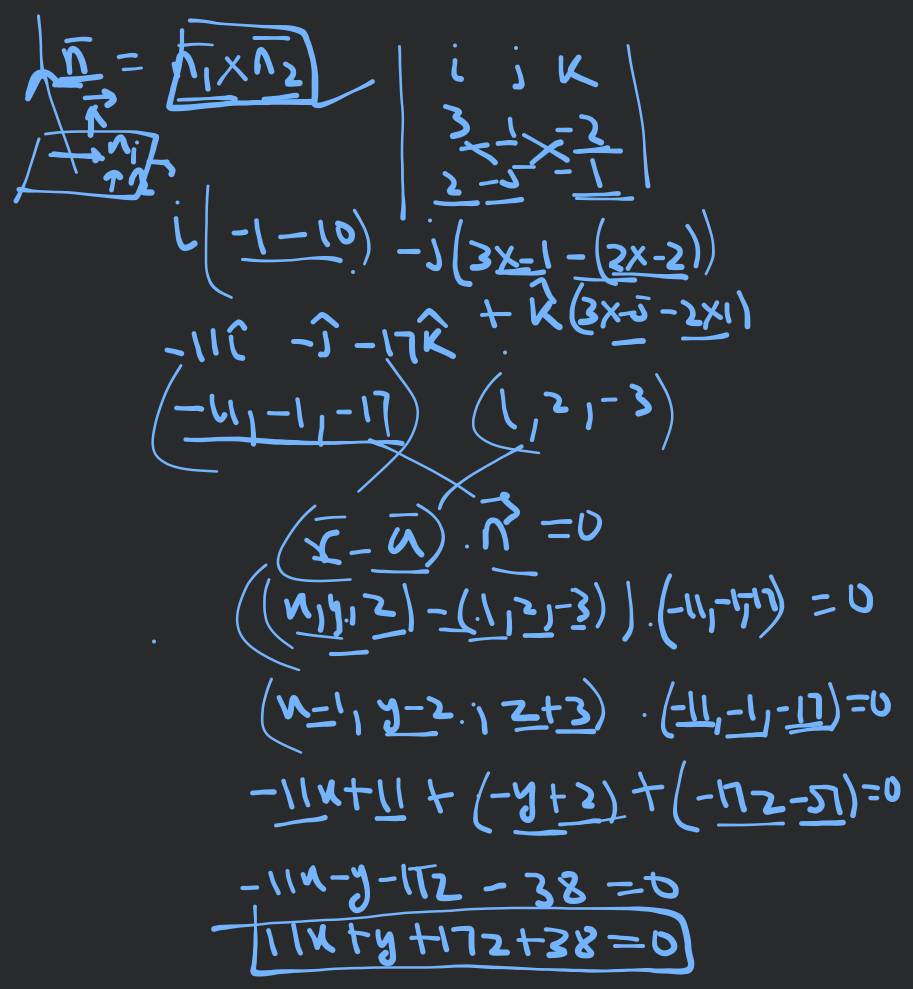 n̄ = n̄₁ × n̄₂
| i j k |
| 3 -1 -2 |
| 2 -5 -1 |
→ n₁
↑ n₂
i(-1-10) -j(3x-1 -(2x-2))
+ k̂(3x-5 -2x1)
-11î -ĵ -17k̂
(-11, -1, -17) (1, 2, -3)
(r̄ - ā) . n⃗ = 0
((x, y, z) - (1, 2, -3)) . (-11, -1, -17) = 0
(x-1, y-2, z+3) . (-11, -1, -17) = 0
-11x+11 + (-y+2) + (-17z-51) = 0
-11x-y-17z - 38 = 0
11x+y+17z+38 = 0